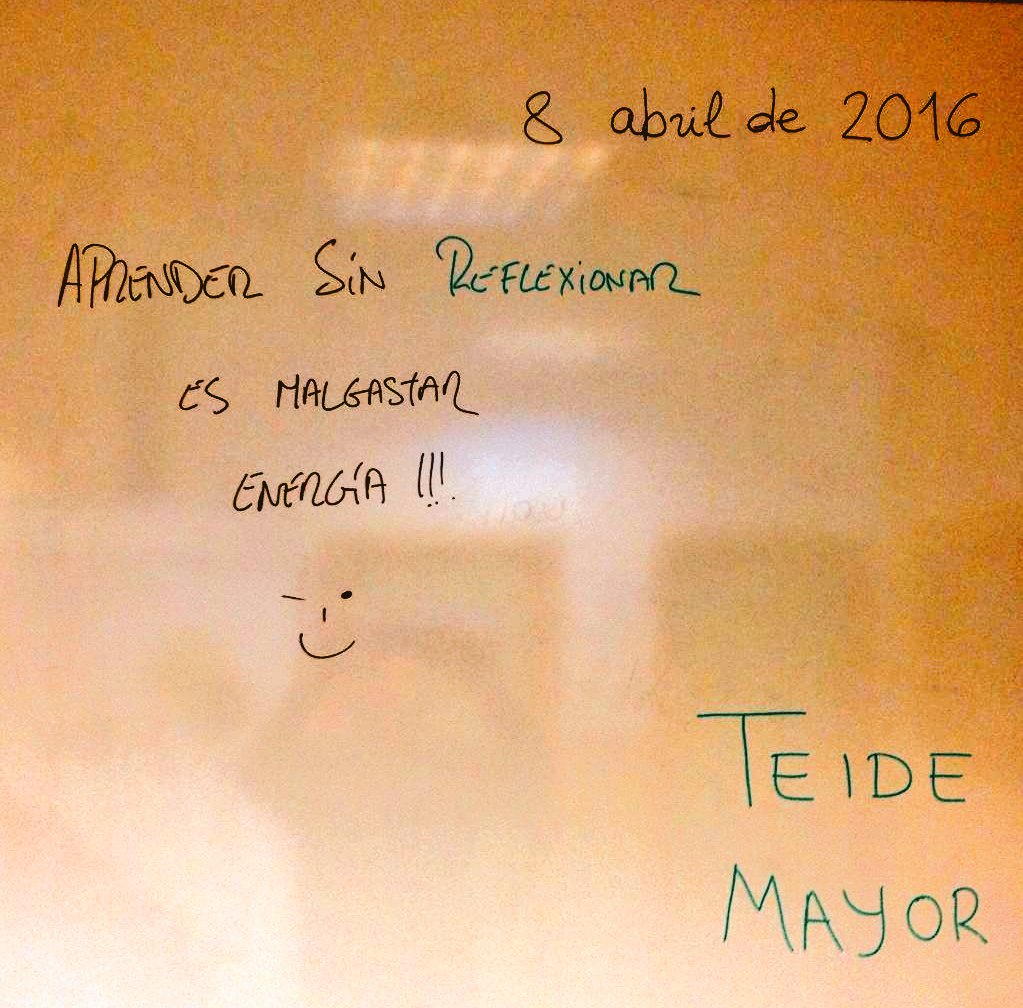 8 abril de 2016
APRENDER SIN REFLEXIONAR
ES MALGASTAR
ENERGÍA !!!
TEIDE
MAYOR